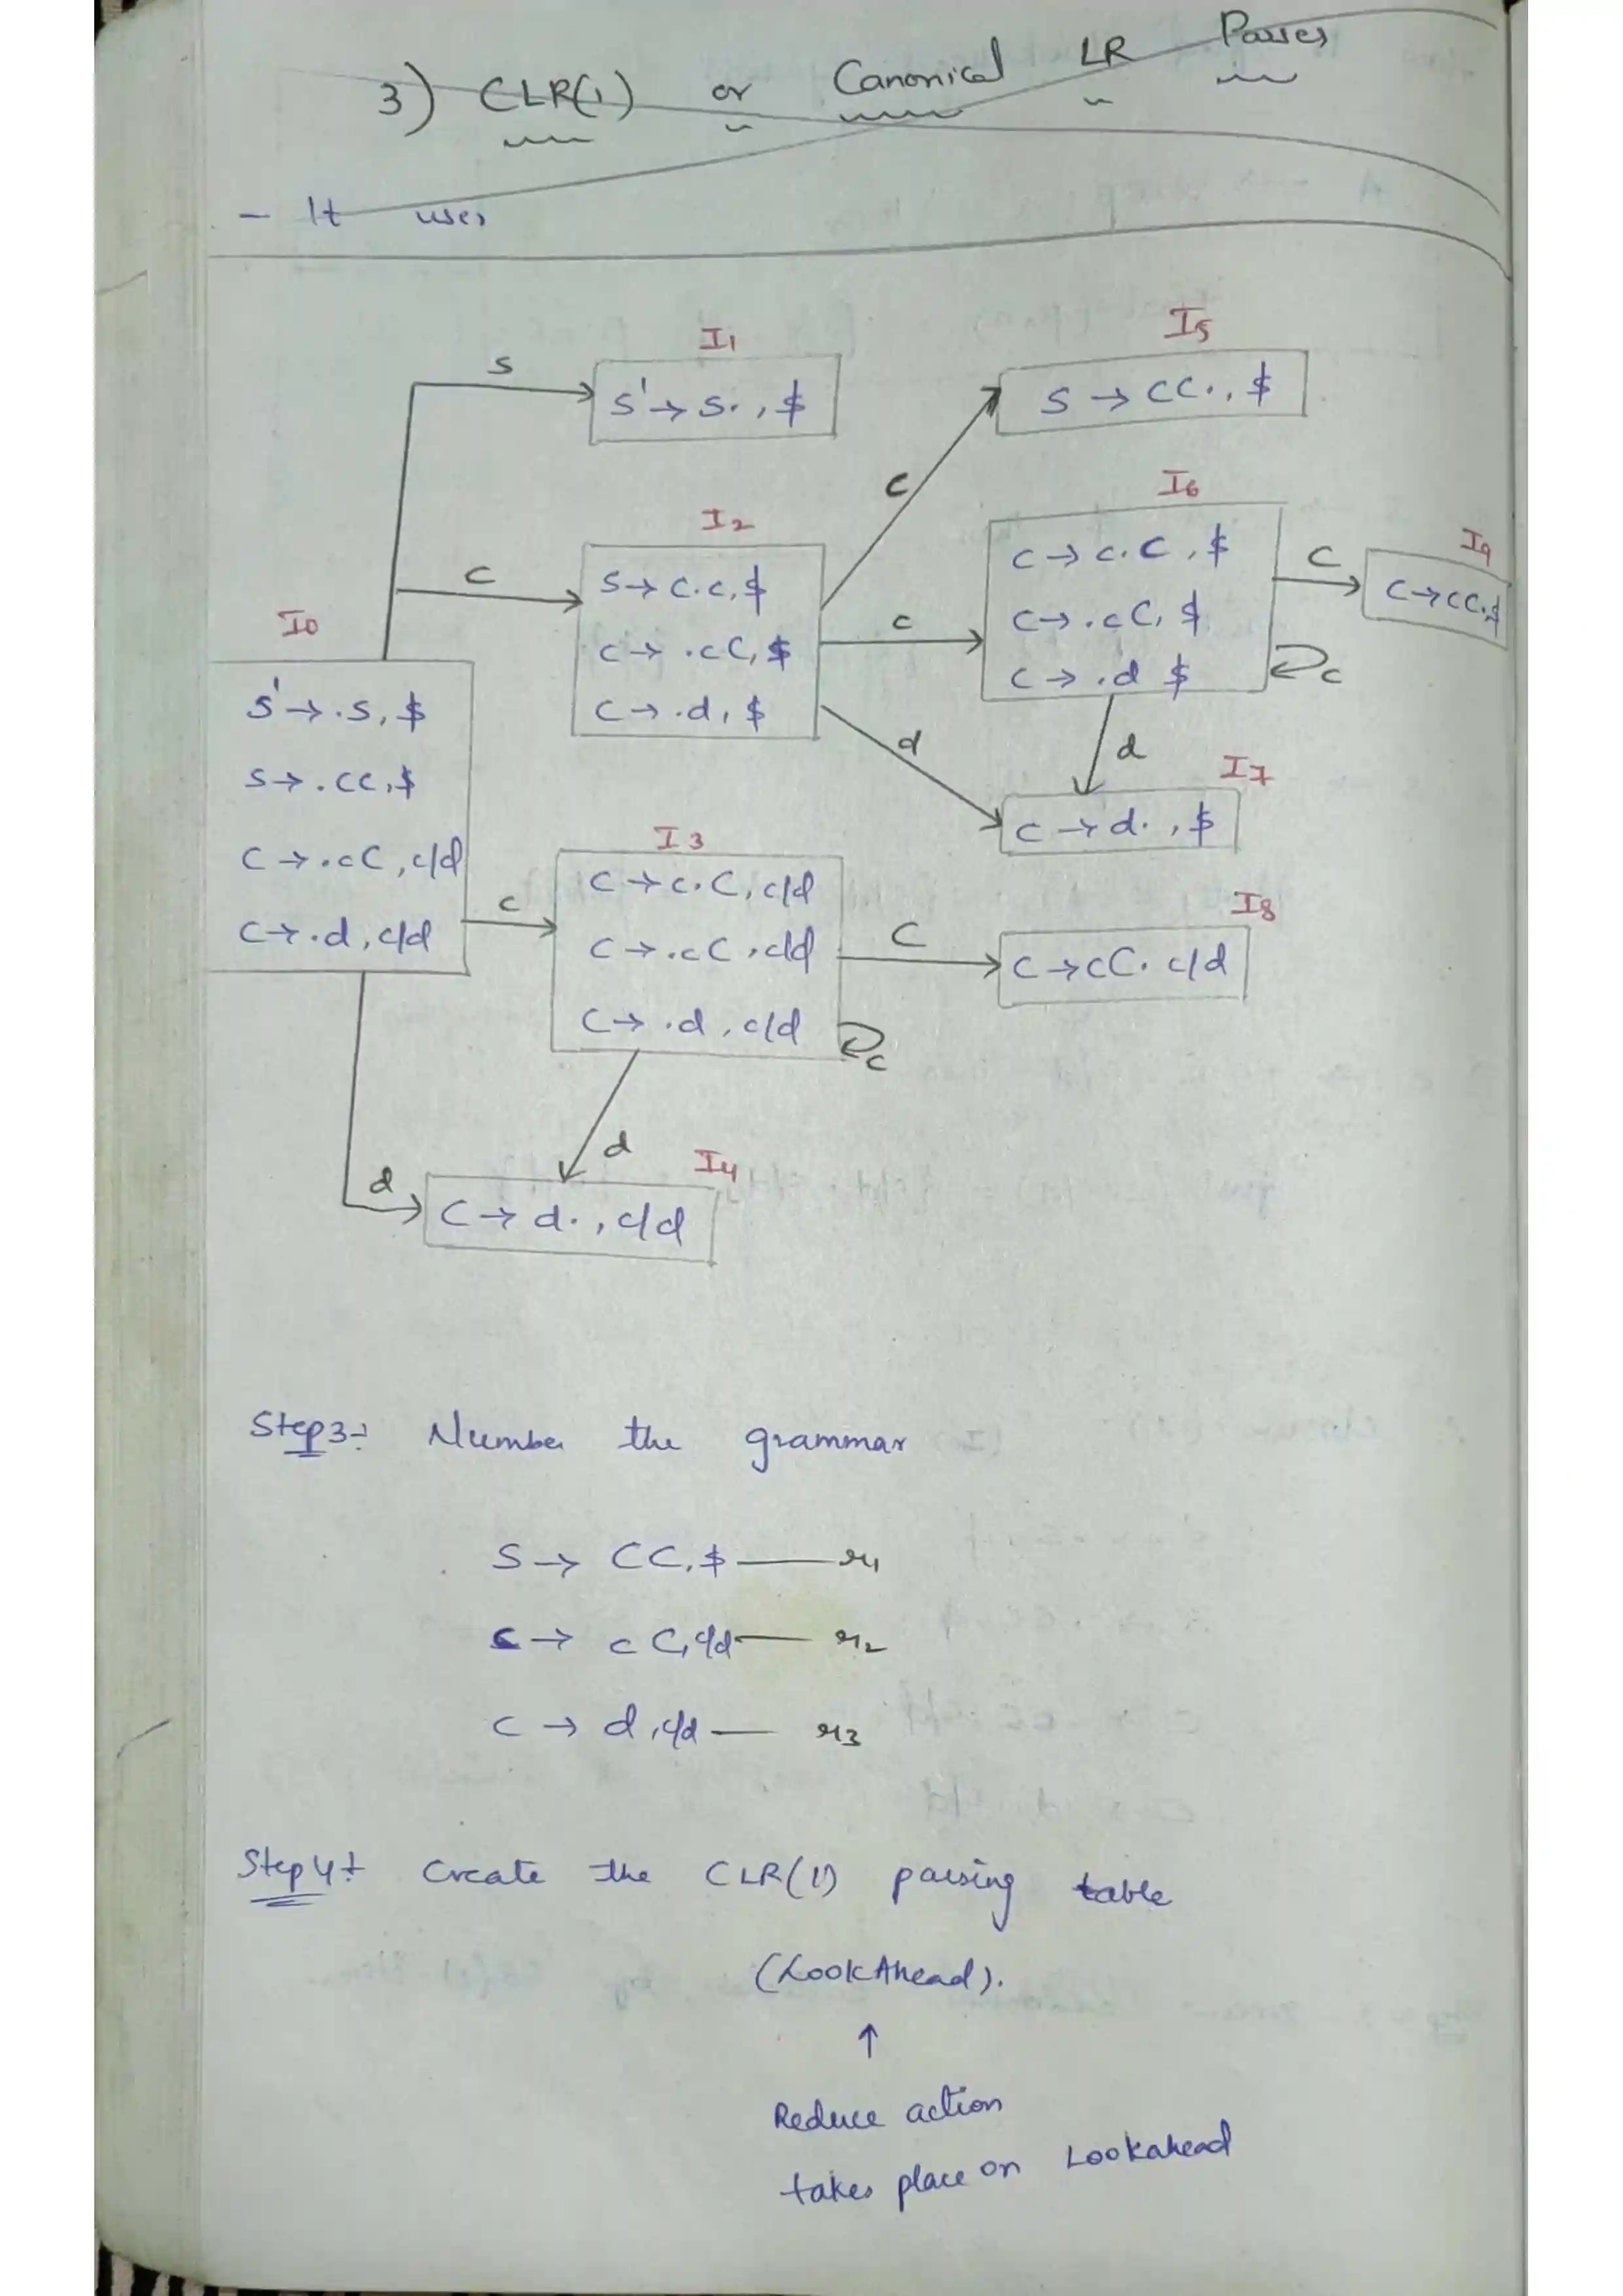 3) CLR(1) or Canonical LR Parser
- It uses
I1
S' → S., $
I5
S → CC., $
S
C
I2
S → C.C, $
C → .cC, $
C → .d, $
C
c
d
I6
C → c.C, $
C → .cC, $
C → .d $
C
I9
C → cC.$
c
d
I7
C → d., $
I0
S' → .S, $
S → .CC, $
C → .cC, c/d
C → .d, c/d
c
I3
C → c.C, c/d
C → .cC, c/d
C → .d, c/d
C
c
I8
C → cC. c/d
d
d
I4
C → d., c/d
Step 3:- Number the grammar
S → CC, $ —— r1
C → cC, c/d —— r2
C → d, c/d —— r3
Step 4:- Create the CLR(1) parsing table
(LookAhead).
↑
Reduce action
takes place on Lookahead